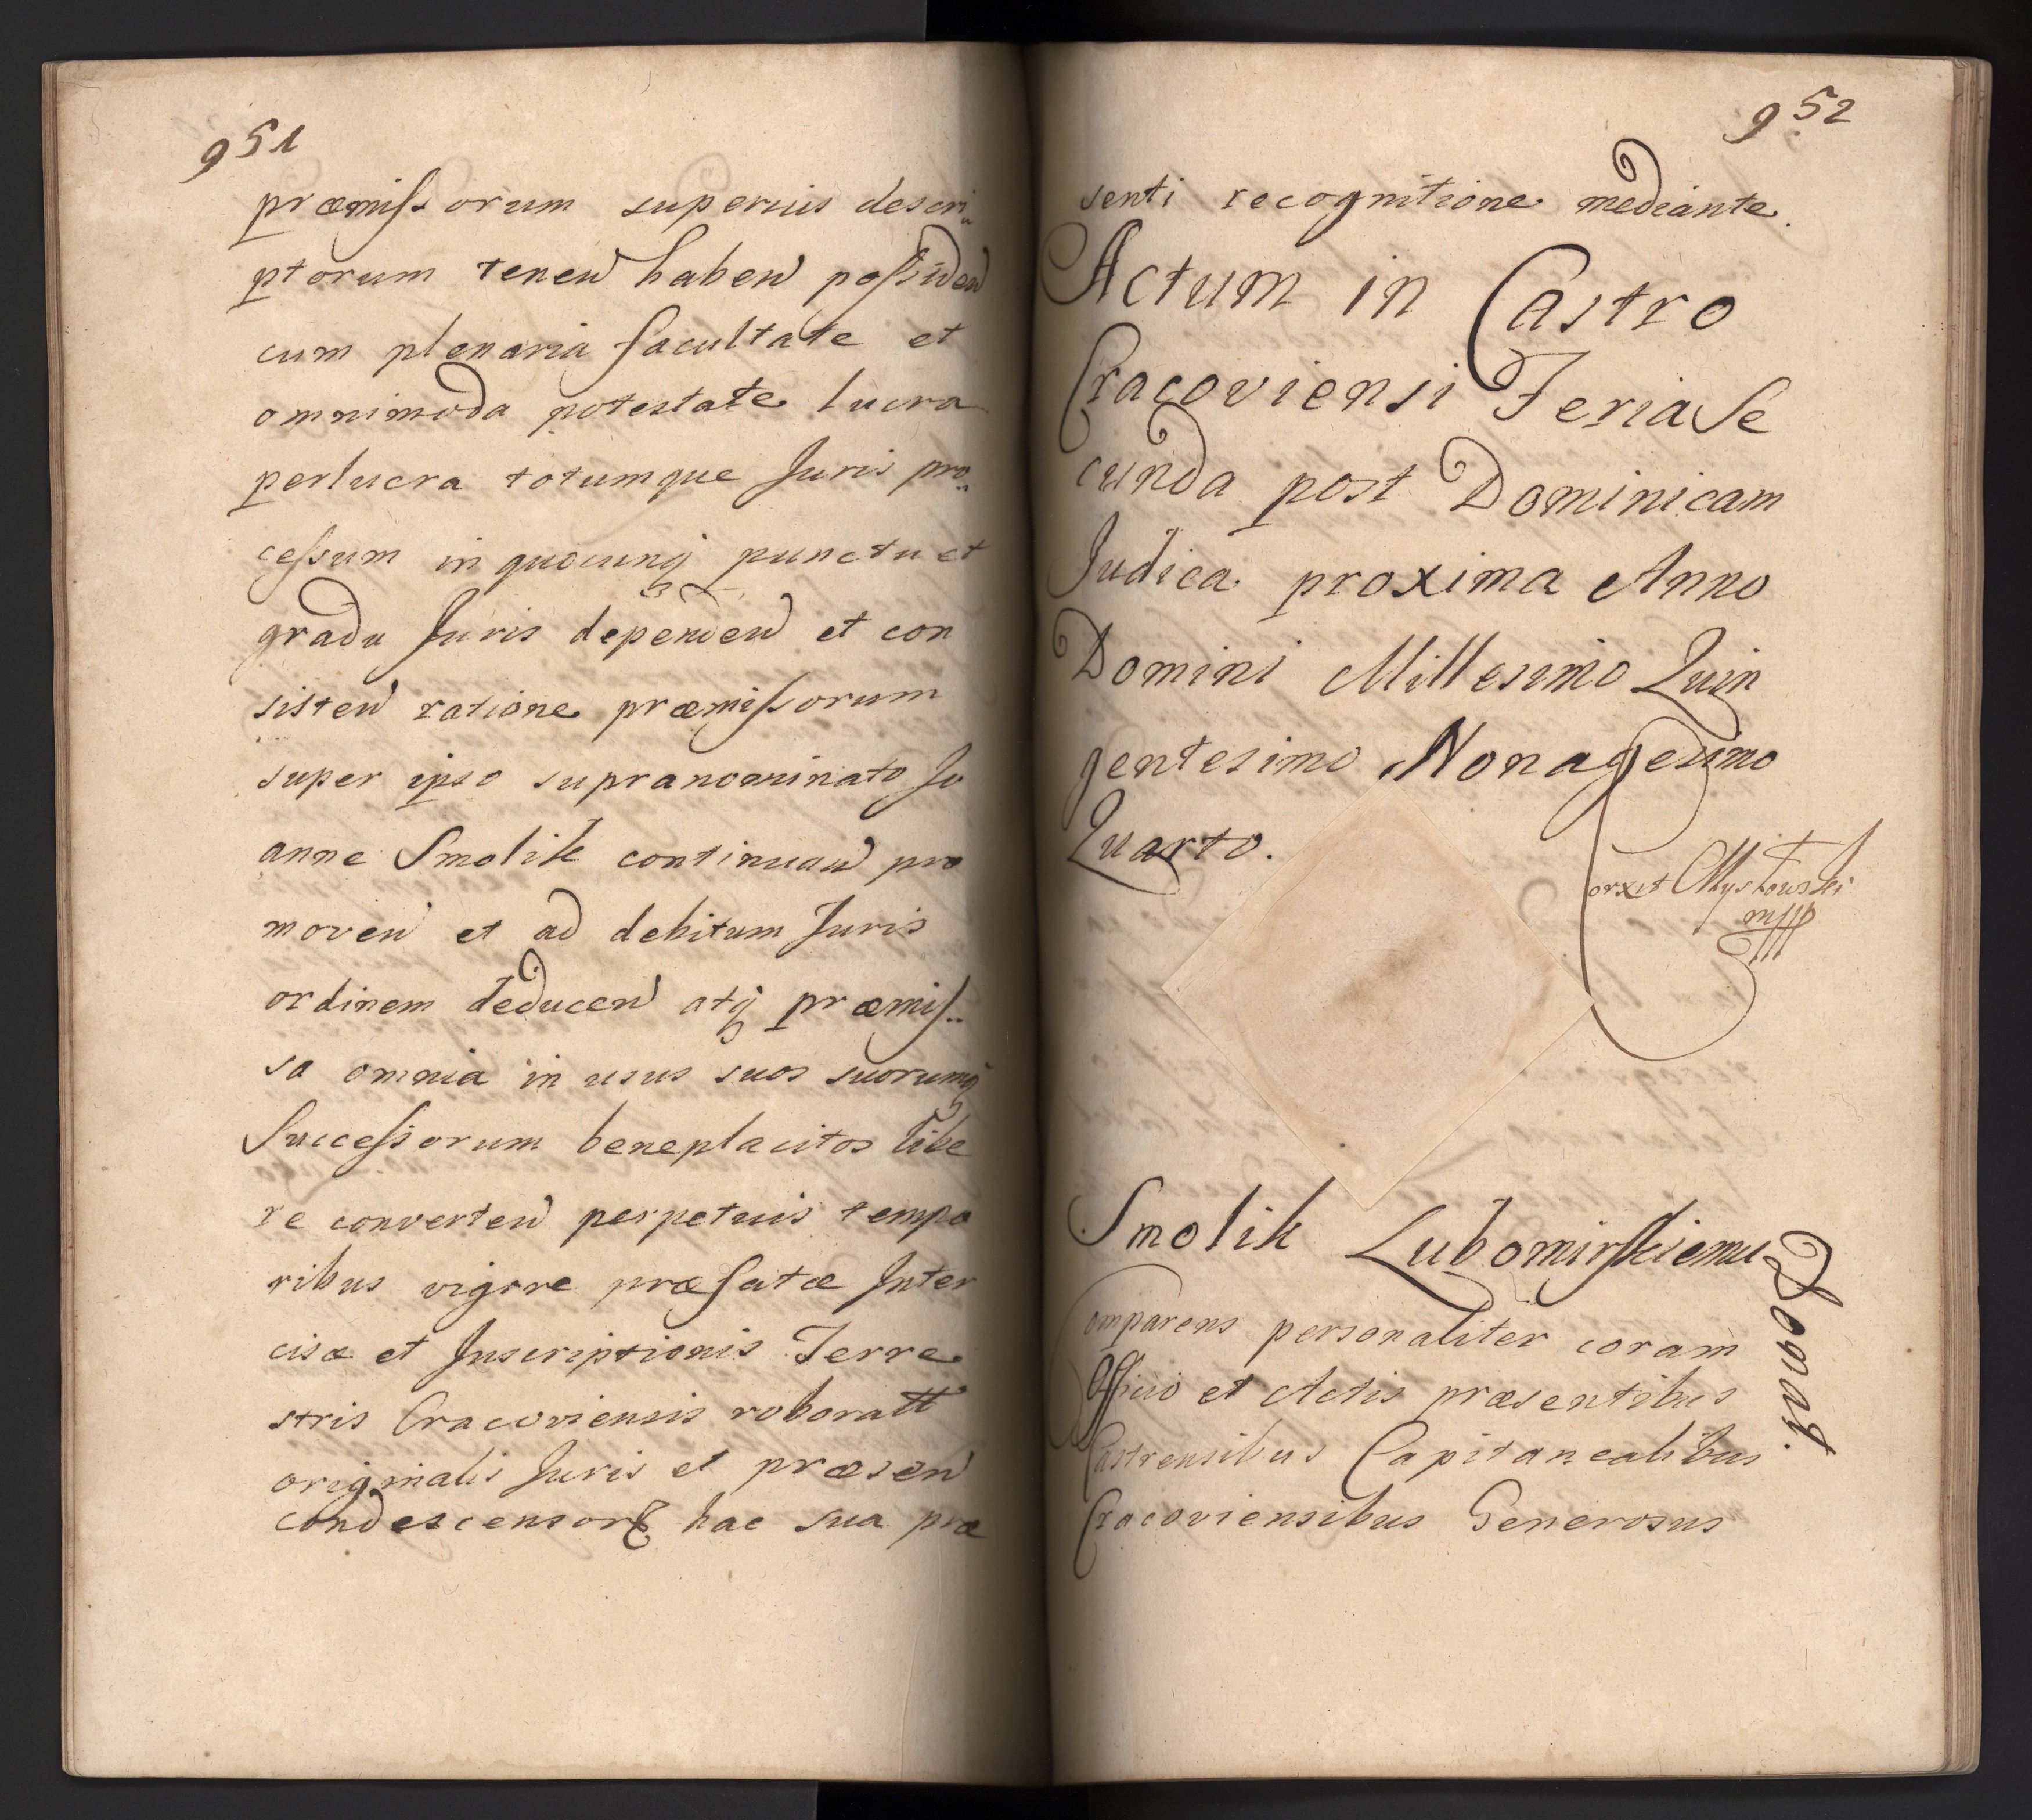 951
præmissorum superius descri„
ptorum tenen haben possiden
cum plenaria facultate et
omnimoda potestate lucra
perlucra totumque Juris pro„
cessum in quocunq punctu et
gradu Juris dependen et con
sisten ratione præmissorum
super ipso supranominato Jo
anne Smolik continuan pro
moven et ad debitum Juris
ordinem deducen atq præmis„
sa omnia in usus suos suorumq
Successorum beneplacitos libe
re converten perpetuis tempo
ribus vigore præfatæ Inter
cisæ et Inscriptionis Terre
stris Cracoviensis roboratt
originalis Juris et præsen
condescensor hac sua præ
952
senti recognitione mediante.
Actum in Castro
Cracoviensi Feria Se
cunda post Dominicam
Judica proxima Anno
Domini Millesimo Quin
gentesimo Nonagesimo
Quarto.
Corxit Mysłowski
mpp
Smolik Lubomirskiemu
Donat.
Comparens personaliter coram
Officio et Actis præsentibus
Castrensibus Capitanealibus
Cracoviensibus Generosus